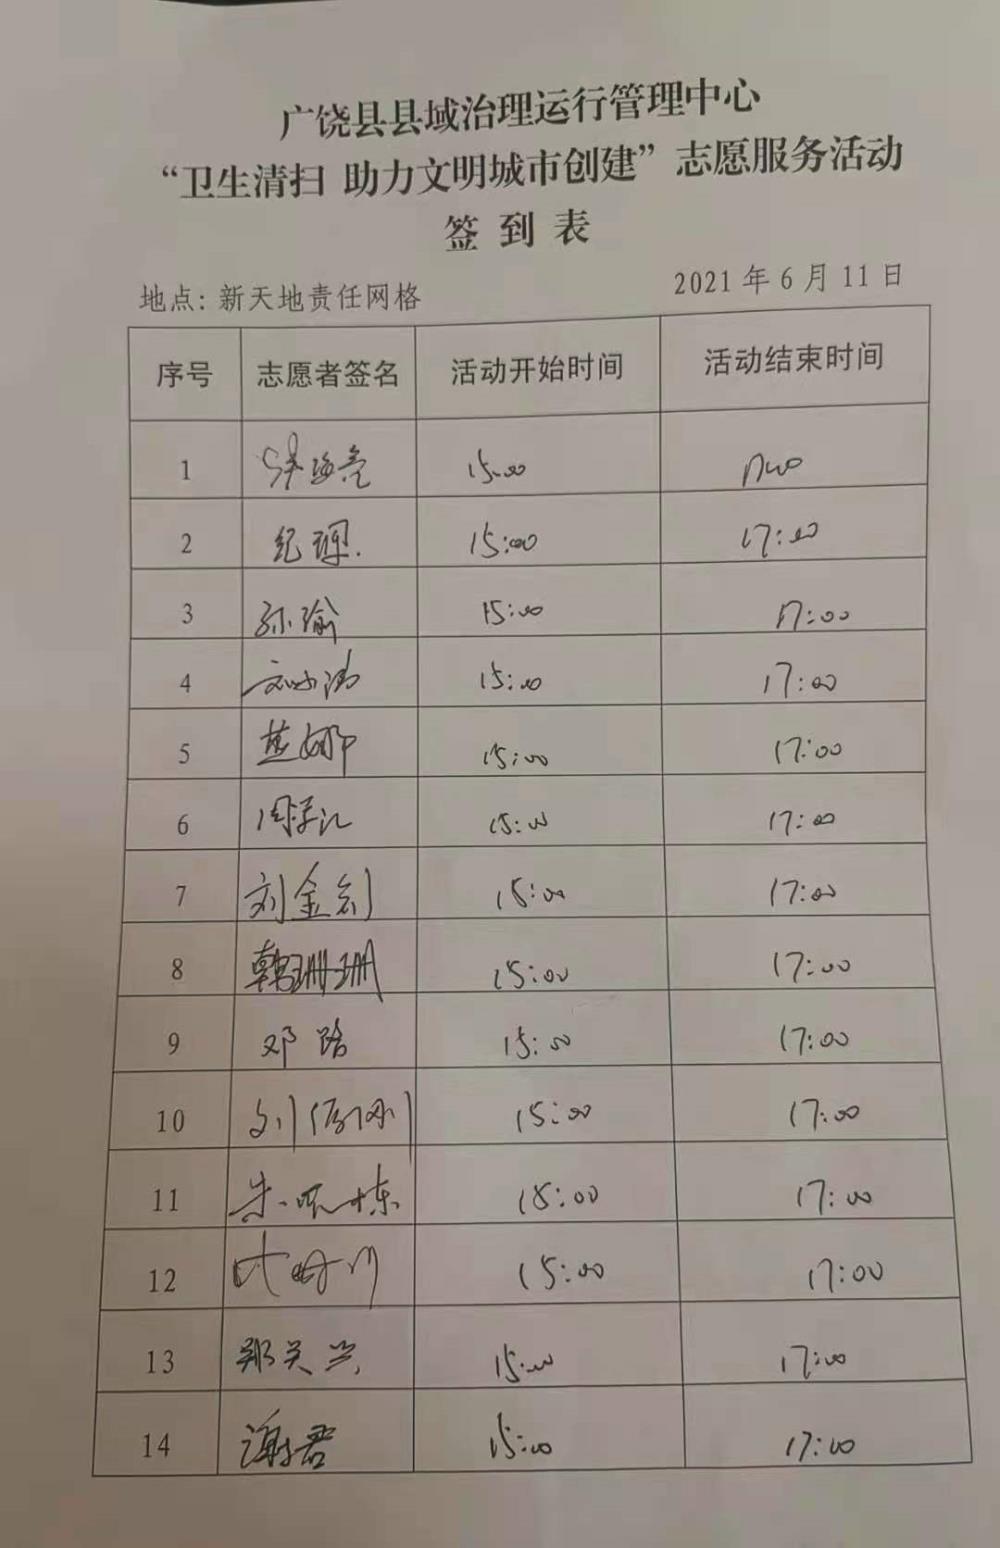 广饶县县域治理运行管理中心
“卫生清扫 助力文明城市创建”志愿服务活动
签到表
地点：新天地责任网格 2021年6月11日
序号 志愿者签名 活动开始时间 活动结束时间
1 15:00 17:00
2 纪珲. 15:00 17:00
3 孙瑜 15:00 17:00
4 15:00 17:00
5 15:00 17:00
6 15:00 17:00
7 刘金剑 15:00 17:00
8 韩珊珊 15:00 17:00
9 邓路 15:00 17:00
10 15:00 17:00
11 15:00 17:00
12 15:00 17:00
13 郑关兴 15:00 17:00
14 谢君 15:00 17:00